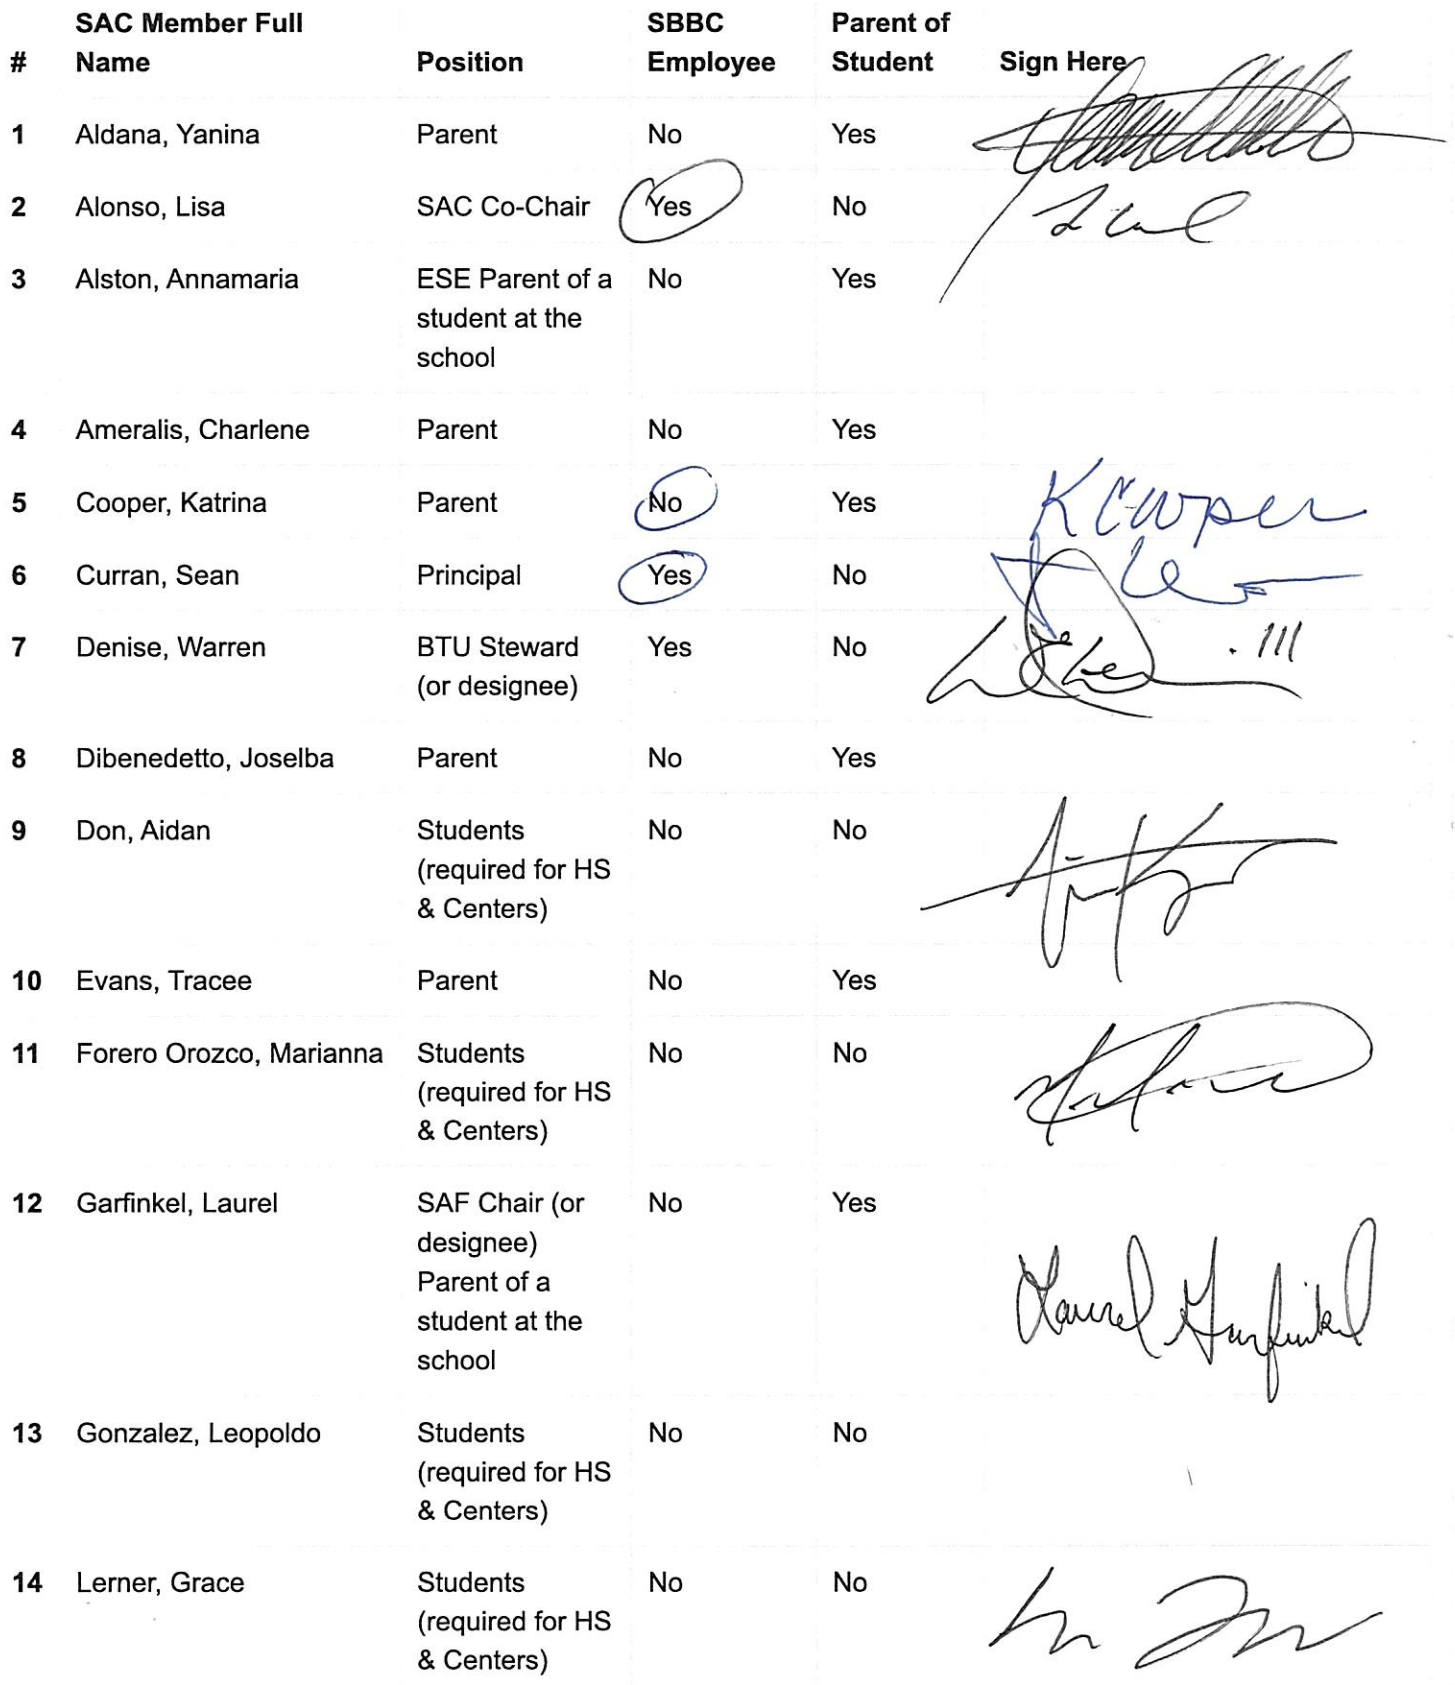 SAC Member Full SBBC Parent of
# Name Position Employee Student Sign Here
1 Aldana, Yanina Parent No Yes
2 Alonso, Lisa SAC Co-Chair Yes No
3 Alston, Annamaria ESE Parent of a No Yes
student at the
school
4 Ameralis, Charlene Parent No Yes
5 Cooper, Katrina Parent No Yes K Cooper
6 Curran, Sean Principal Yes No
7 Denise, Warren BTU Steward Yes No
(or designee)
8 Dibenedetto, Joselba Parent No Yes
9 Don, Aidan Students No No
(required for HS
& Centers)
10 Evans, Tracee Parent No Yes
11 Forero Orozco, Marianna Students No No
(required for HS
& Centers)
12 Garfinkel, Laurel SAF Chair (or No Yes
designee)
Parent of a
student at the Laurel Garfinkel
school
13 Gonzalez, Leopoldo Students No No
(required for HS
& Centers)
14 Lerner, Grace Students No No
(required for HS
& Centers)